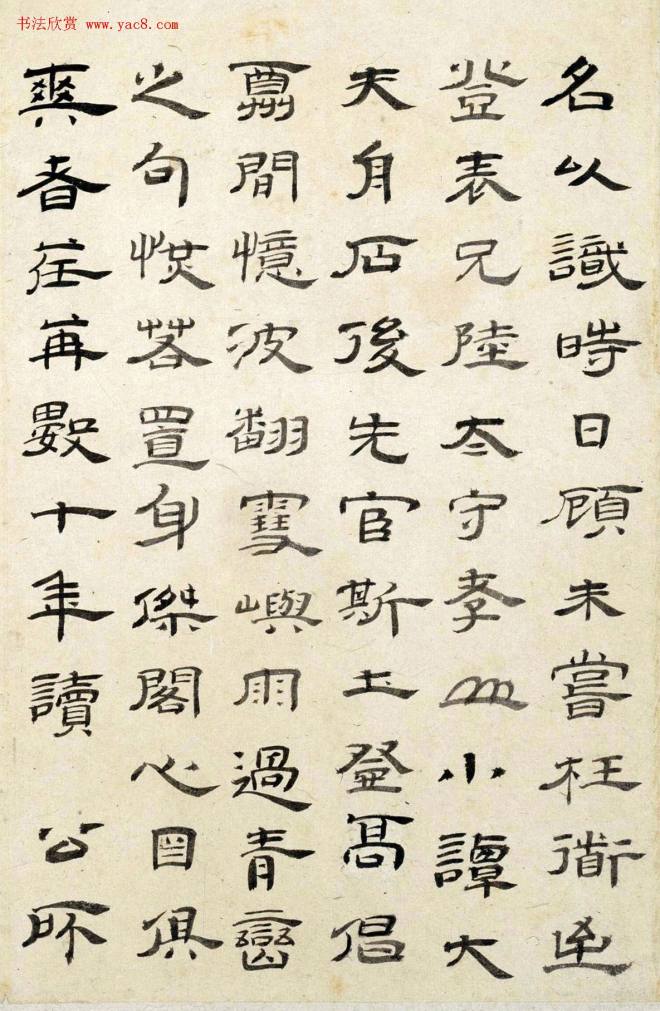 书法欣赏 www.yac8.com
名以識時日顧未嘗枉衜
登表兄陸太守孝山小譚大
夫舟石後先官斯土登高倡
酬間憶波翻雪嶼雨過青巒
之句恍若置身傑閣心目俱
爽者荏苒數十年讀 公所